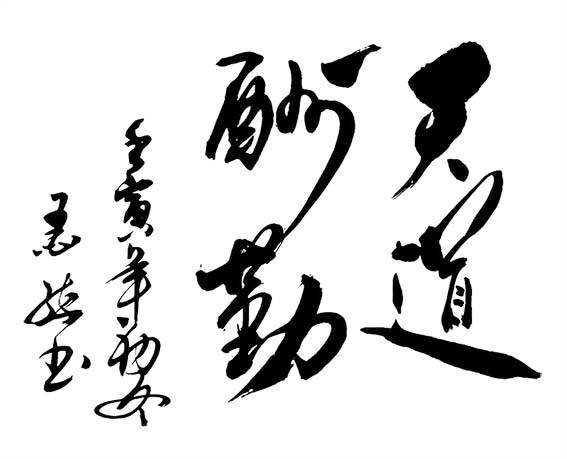 天道
酬勤
壬寅年初冬
墨然书